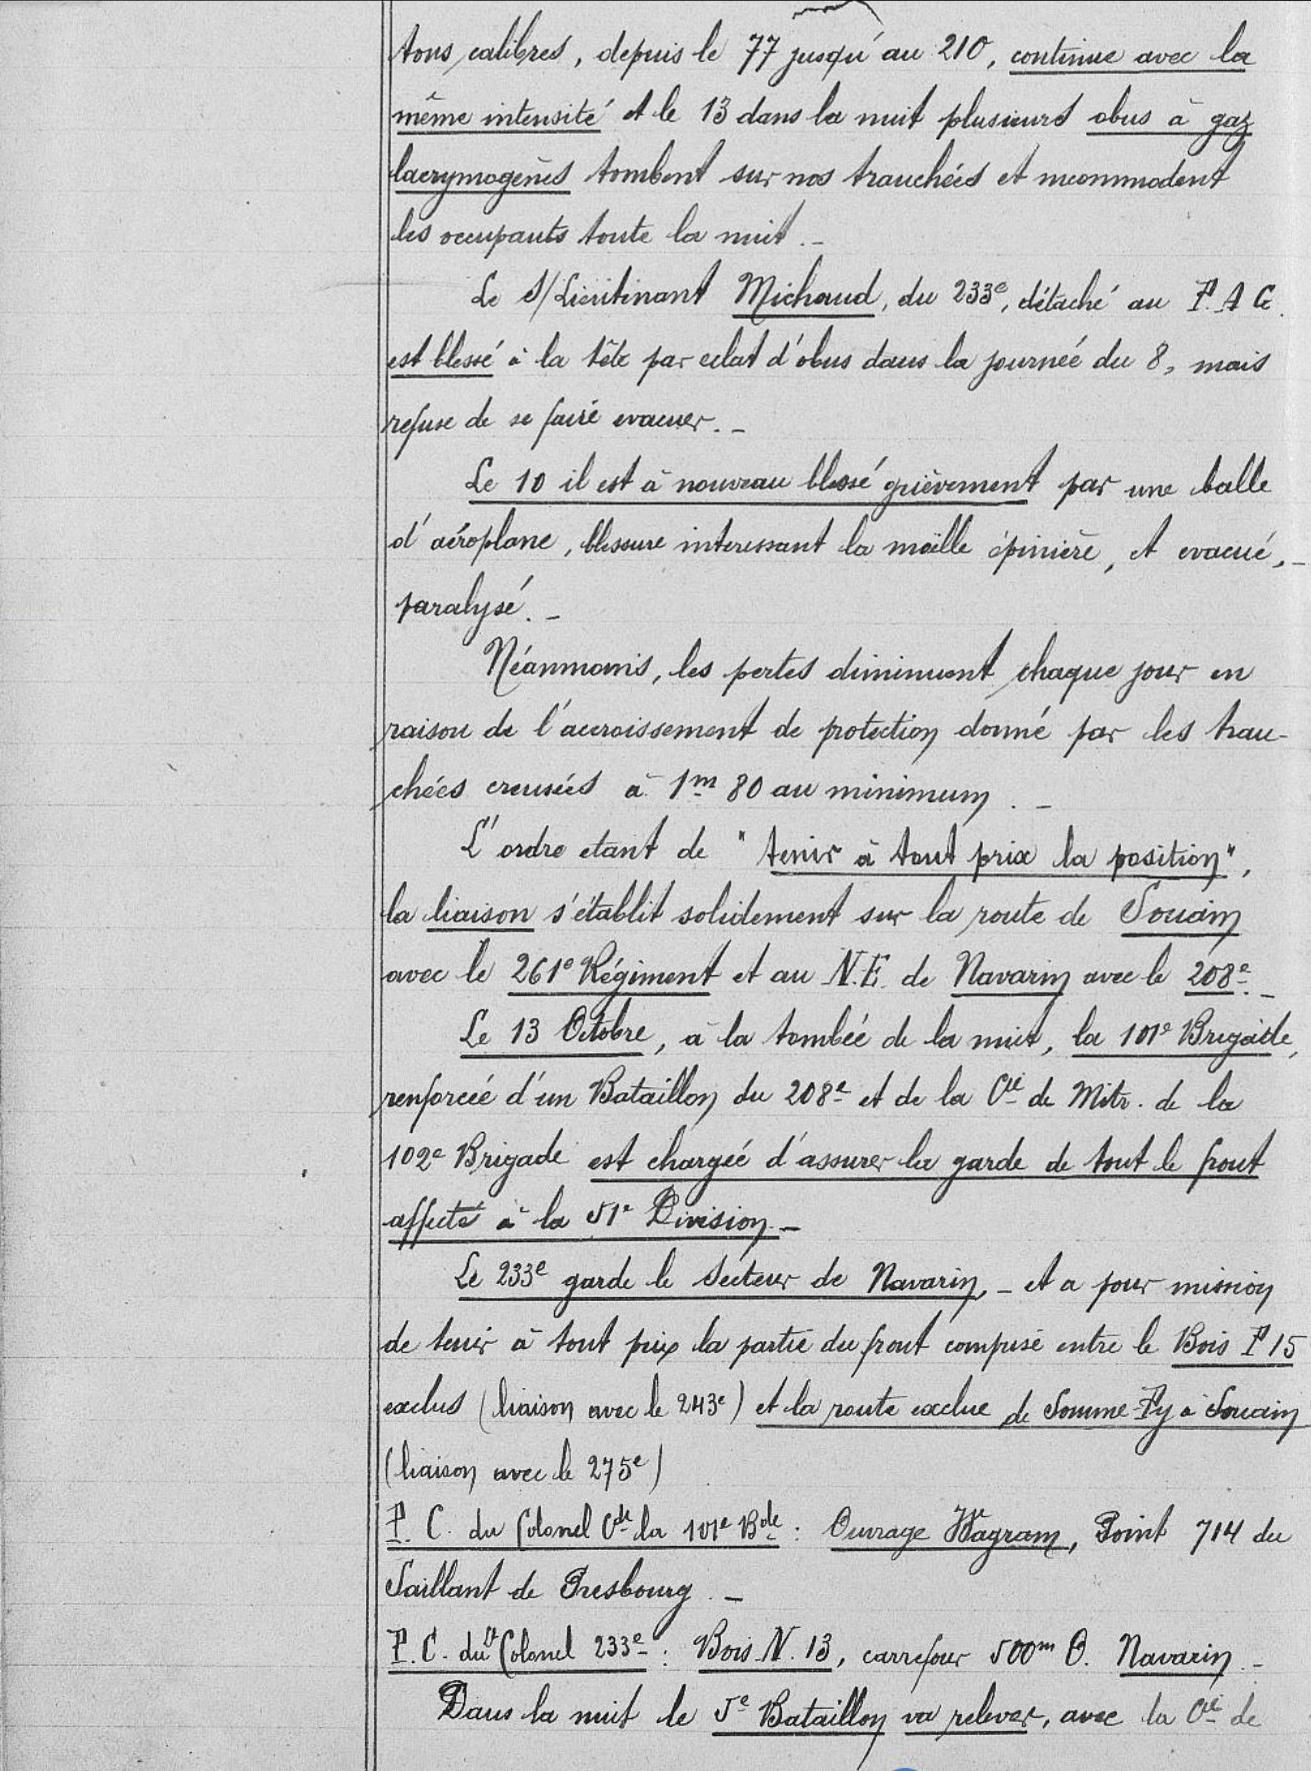 tous calibres, depuis le 77 jusqu'au 210, continue avec la
même intensité et le 13 dans la nuit plusieurs obus à gaz
lacrymogènes tombent sur nos tranchées et incommodent
les occupants toute la nuit. -
Le S/Lieutenant Michaud, du 233e, détaché au P. A. G.
est blessé à la tête par eclat d'obus dans la journée du 8, mais
refuse de se faire evacuer. -
Le 10 il est à nouveau blessé grièvement par une balle
d'aéroplane, blessure interessant la moëlle épinière, et evacué, -
paralysé. -
Néanmoins, les pertes diminuent chaque jour en
raison de l'accroissement de protection donné par les tran-
chées creusées à 1m 80 au minimum. -
L'ordre etant de "tenir à tout prix la position",
la liaison s'établit solidement sur la route de Souain
avec le 261e Régiment et au N.E. de Navarin avec le 208e. -
Le 13 Octobre, à la tombée de la nuit, la 101e Brigade,
renforcée d'un Bataillon du 208e et de la Cie de Mitr. de la
102e Brigade est chargée d'assurer la garde de tout le front
affecté à la 51e Division. -
Le 233e garde le Secteur de Navarin, - et a pour mission
de tenir à tout prix la partie du front comprise entre le Bois P 15
exclus (liaison avec le 243e) et la route exclue de Somme-Py à Souain
(liaison avec le 275e)
P. C. du Colonel Cdt la 101e Bde : Ouvrage Wagram, Point 714 du
Saillant de Presbourg. -
P. C. du Lt Colonel 233e : Bois N. 13, carrefour 500m O. Navarin. -
Dans la nuit le 5e Bataillon va relever, avec la Cie de